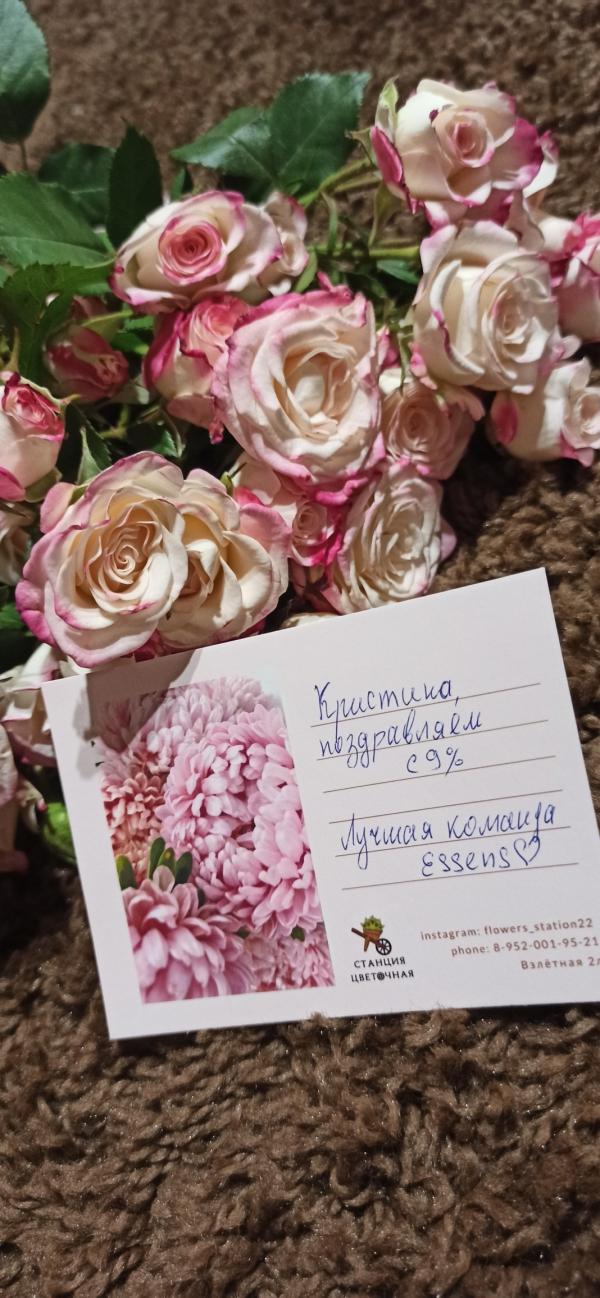 Кристина,
поздравляем
с 9%
Лучшая команда
Essens♡
СТАНЦИЯ
ЦВЕТОЧНАЯ
instagram: flowers_station22
phone: 8-952-001-95-21
Взлётная 2л